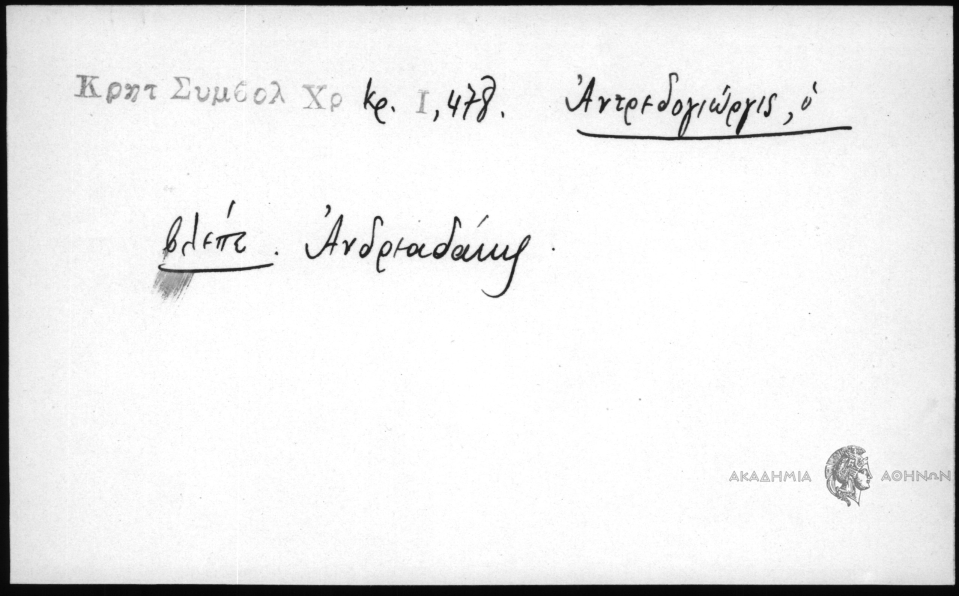 Κρητ Συμβολ Χρ κρ. I, 478. Ἀντρεδογιώργις, ὁ
βλέπε. Ἀνδρεαδάκης.
ΑΚΑΔΗΜΙΑ ΑΘΗΝΩΝ